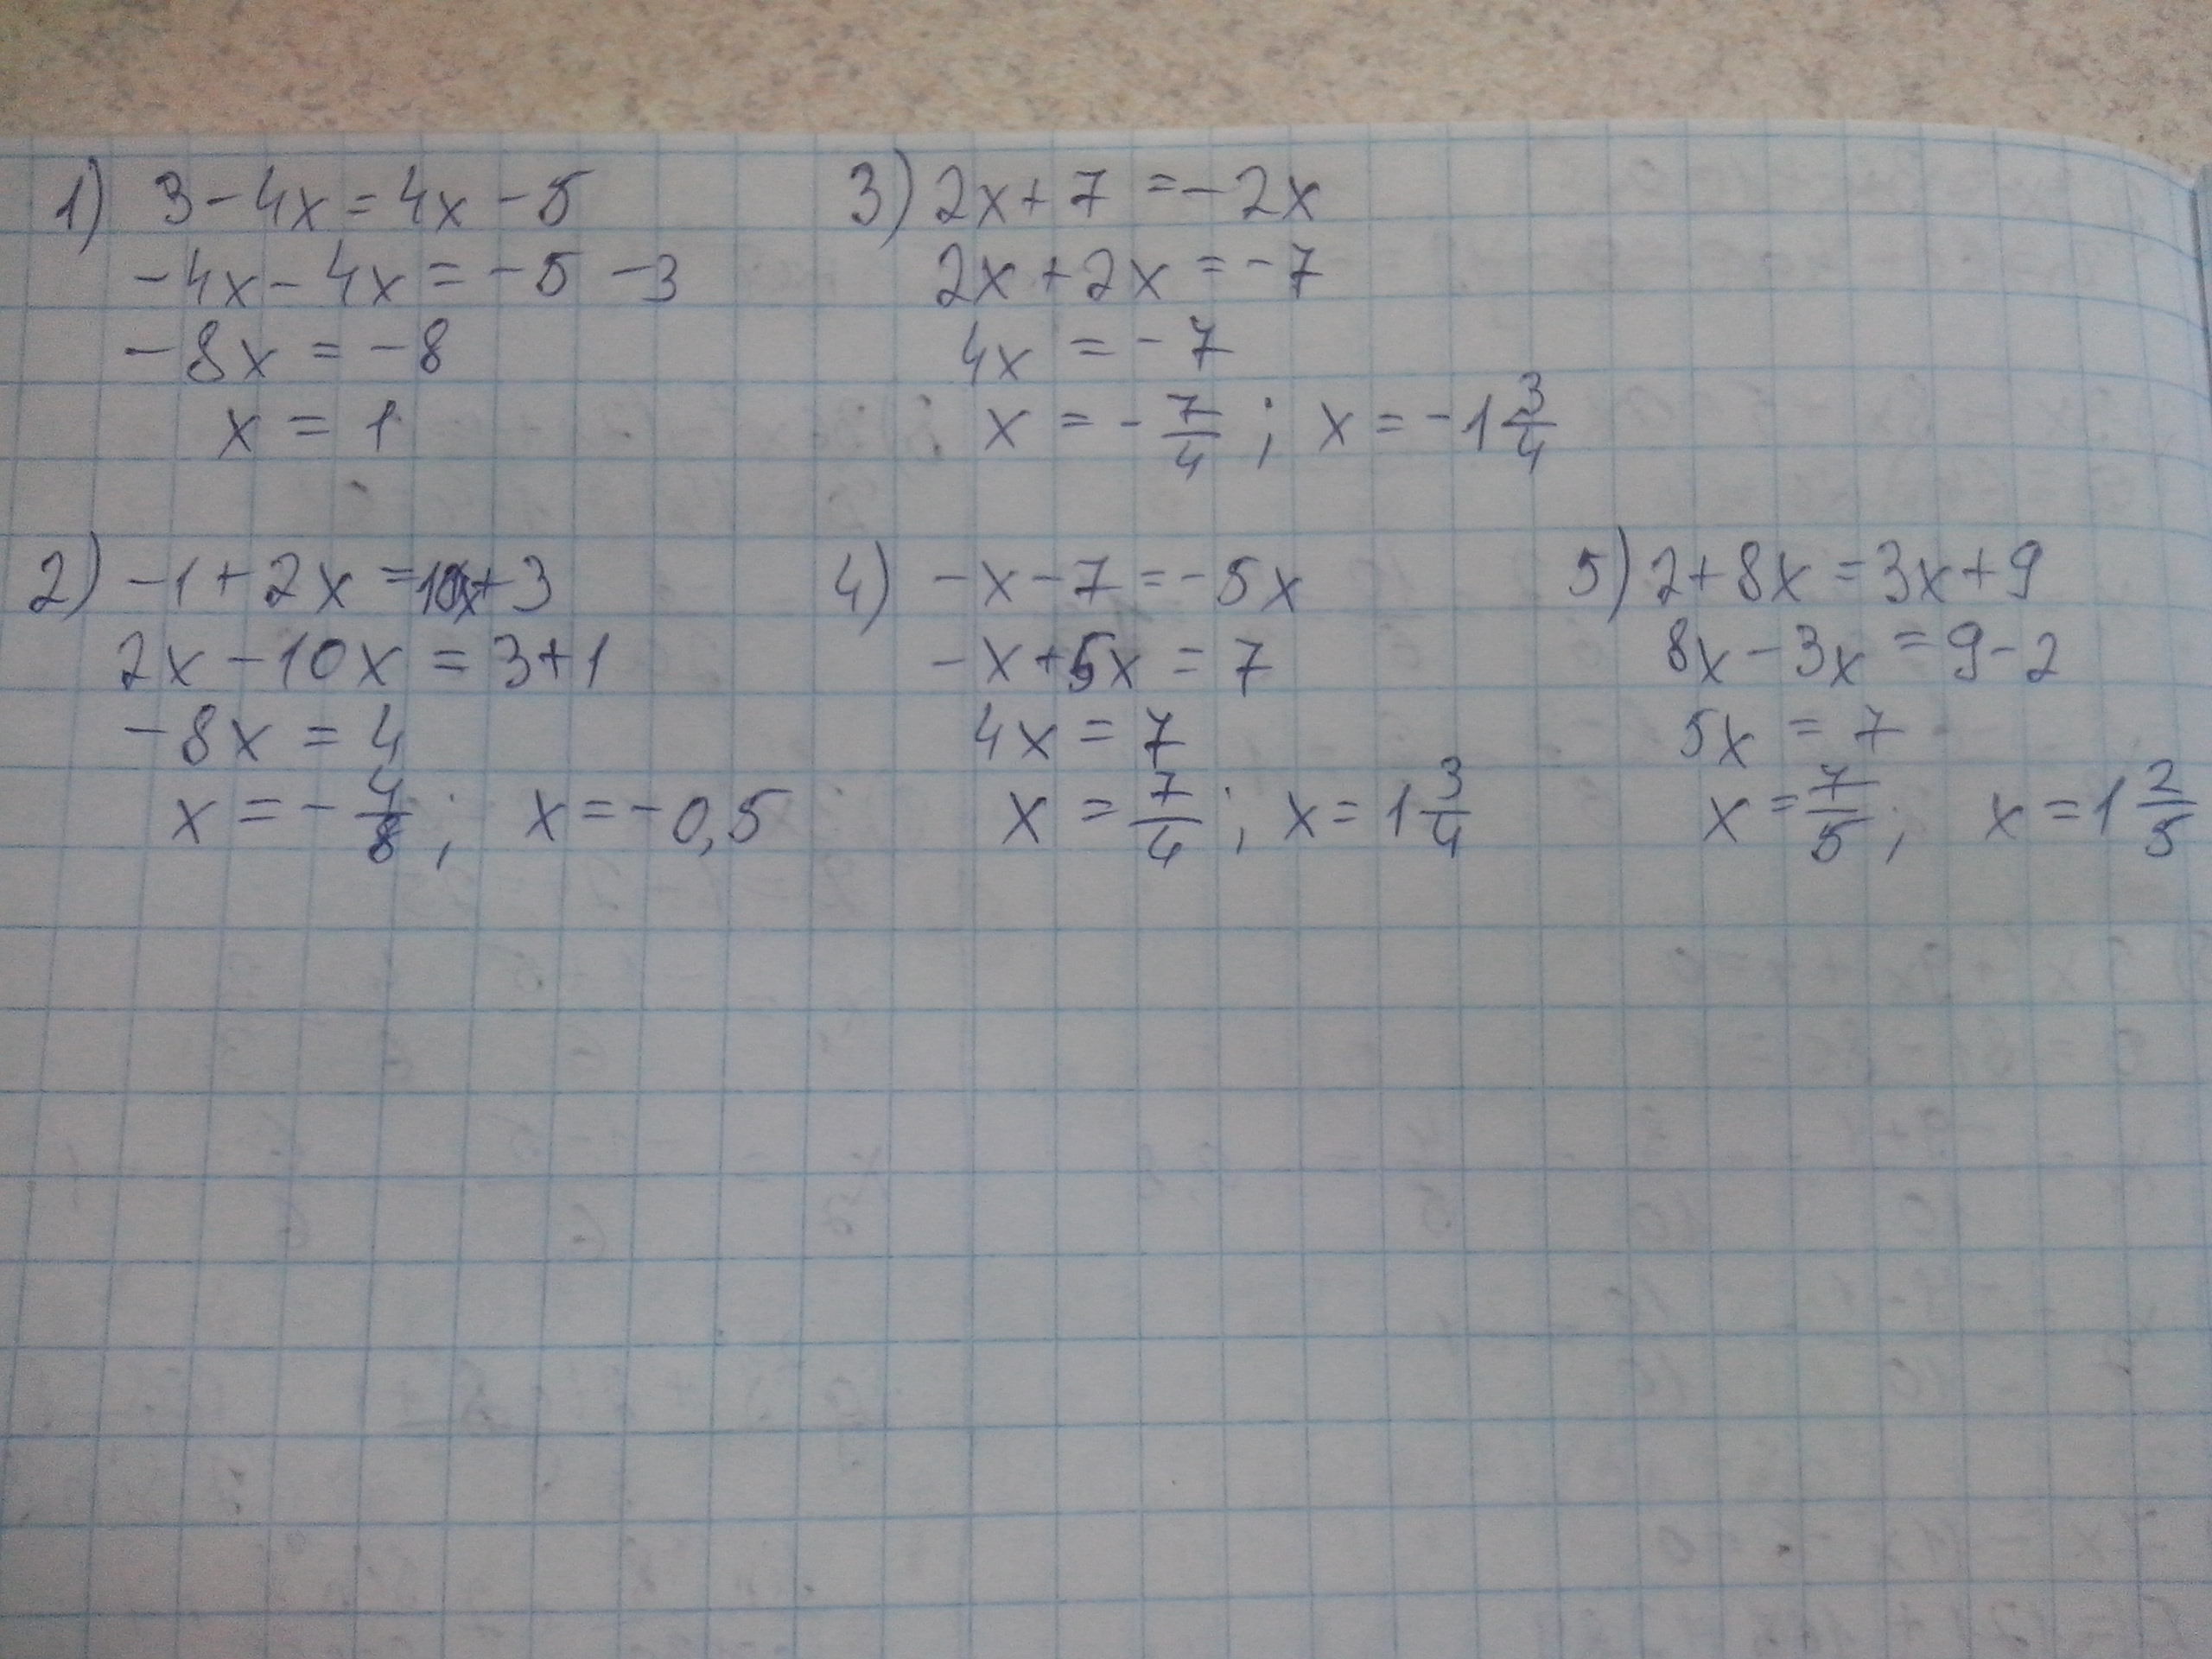 1) 3-4x=4x-5
-4x-4x=-5-3
-8x=-8
x=1
3) 2x+7=-2x
2x+2x=-7
4x=-7
x=-7/4; x=-1 3/4
2) -1+2x=10x+3
2x-10x=3+1
-8x=4
x=-4/8; x=-0,5
4) -x-7=-5x
-x+5x=7
4x=7
x=7/4; x=1 3/4
5) 2+8x=3x+9
8x-3x=9-2
5x=7
x=7/5; x=1 2/5